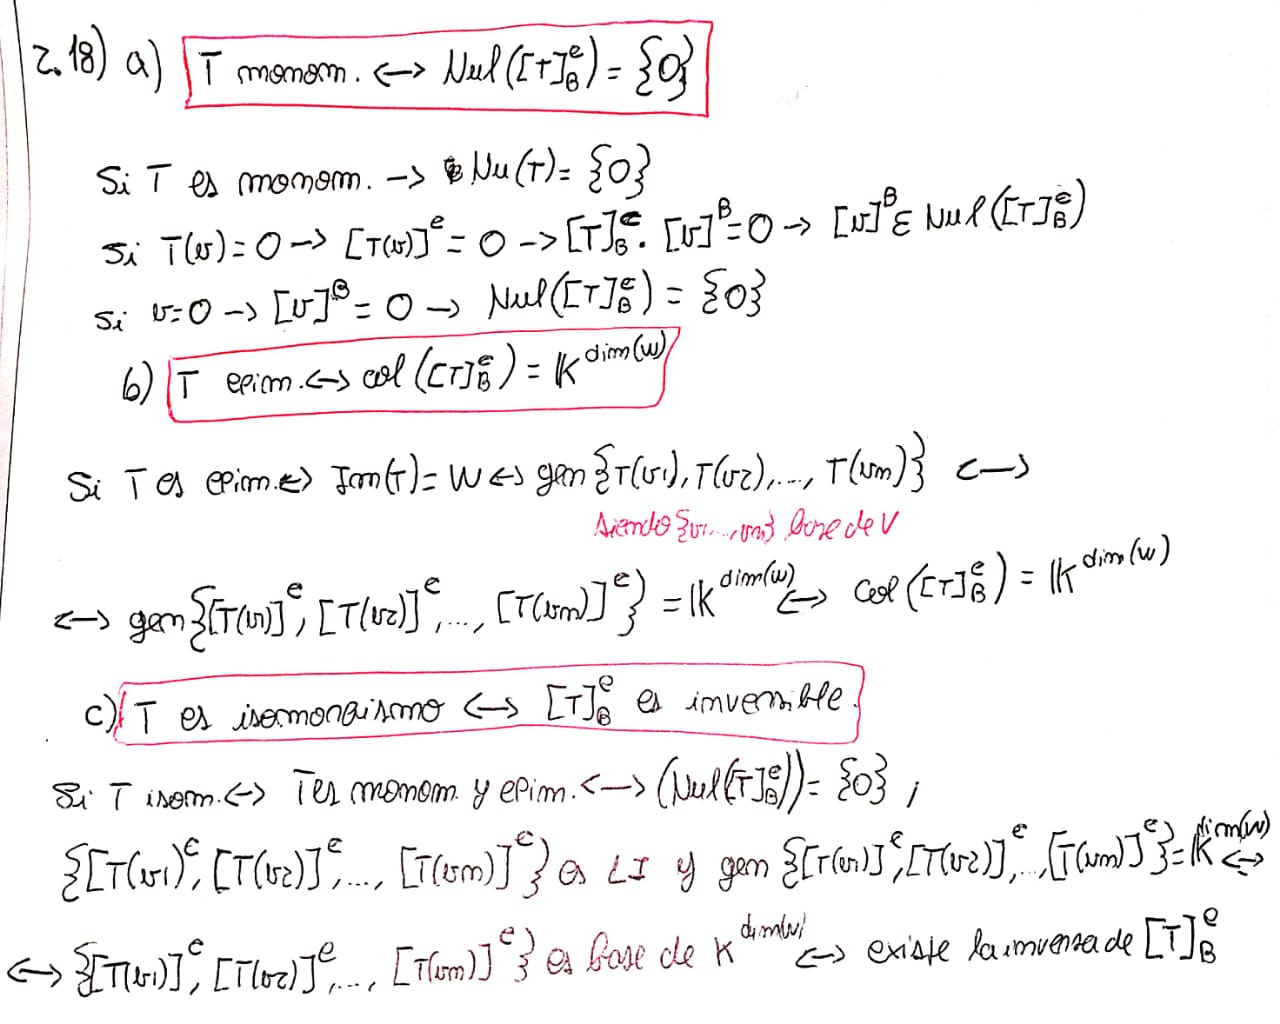 2.18) a) T monom. <-> Nul([T]_B^e) = {0}
Si T es monom. -> Nu(T) = {0}
Si T(v) = 0 -> [T(v)]^e = 0 -> [T]_B^e . [v]^B = 0 -> [v]^B ε Nul([T]_B^e)
Si v=0 -> [v]^B = 0 -> Nul([T]_B^e) = {0}
b) T epim. <-> col([T]_B^e) = K^dim(w)
Si T es epim. <-> Im(T) = W <-> gen{T(v1), T(v2), ..., T(vm)} <->
siendo {v1...,vm} base de V
<-> gen{[T(v1)]^e, [T(v2)]^e, ..., [T(vm)]^e} = K^dim(w) <-> Col([T]_B^e) = K^dim(w)
c) T es isomorfismo <-> [T]_B^e es inversible.
Si T isom. <-> T es monom. y epim. <-> (Nul([T]_B^e)) = {0} ;
{[T(v1)^e, [T(v2)]^e, ..., [T(vm)]^e} es LI y gen {[T(v1)]^e, [T(v2)]^e, ..., [T(vm)]^e} = K^dim(w) <->
<-> {[T(v1)]^e, [T(v2)]^e, ..., [T(vm)]^e} es base de K^dim(w) <-> existe la inversa de [T]_B^e